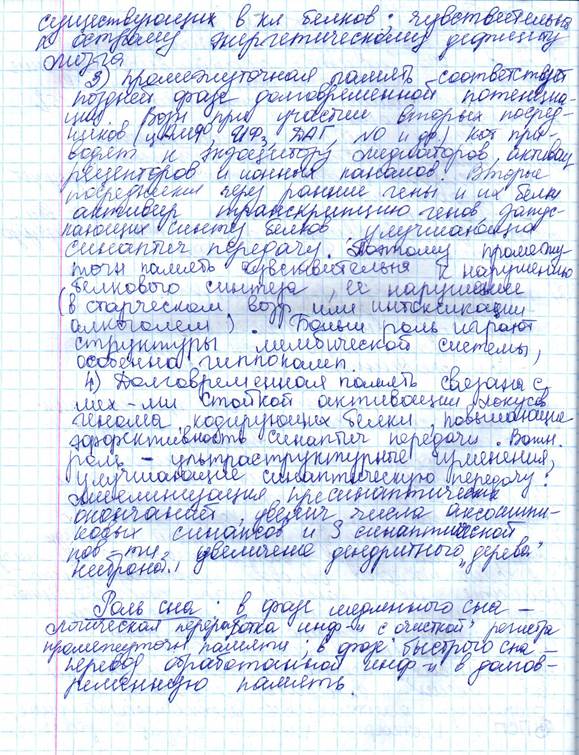 существующих в кл белков; чувствительна
к острому энергетическому дефициту
мозга
3) промежуточная память соответствует
поздней фазе долговременной потенциа-
ции. Возн при участии вторых посред-
ников (цАМФ, ИФ3, ДАГ, NO и др) кот при-
водят к экзоцитозу медиаторов, активац
рецепторов и ионных каналов. Вторые
посредники через ранние гены и их белки
активир транскрипцию генов, запус-
кающих синтез белков, улучшающих
синаптич передачу. Поэтому промежу-
точн память чувствительна к нарушению
белкового синтеза, её нарушение
(в старческом возр или интоксикации
алкоголем). Больш роль играют
структуры лимбической системы,
особенно гиппокамп.
4) Долговременная память связана с
мех-ми стойкой активации локусов
генома, кодирующих белки, повышающие
эффективность синаптич передачи. Важн.
роль - ультраструктурные изменения,
улучшающие синаптическую передачу:
миелинизация пресинаптических
окончаний, увелич числа аксошипи-
ковых синапсов и S синаптической
пов-ти, увеличение дендритного "дерева"
нейронов.
Роль сна: в фазе медленного сна -
логическая переработка инф-и с очисткой регистра
промежуточн памяти; в фазе быстрого сна -
перевод обработанной инф-и в долгов-
ременную память.